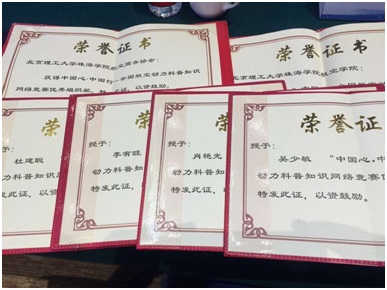 荣誉证书
北京理工大学珠海学院航空商务协会:
获得中国心·中国行·全国航空动力科普知识
网络竞赛优秀组织奖,特发此证,以资鼓励。
荣誉证书
北京理工大学珠海学院航空学院:
荣
授于:
杜建聪
动力科普知识
特发此证,以
荣
授于:
李有旺
动力科普知
特发此证,
荣
授于:
肖艳光
动力科普
特发此证
荣誉证书
授于:
吴少敏 “中国心·中
动力科普知识网络竞赛优
特发此证,以资鼓励。